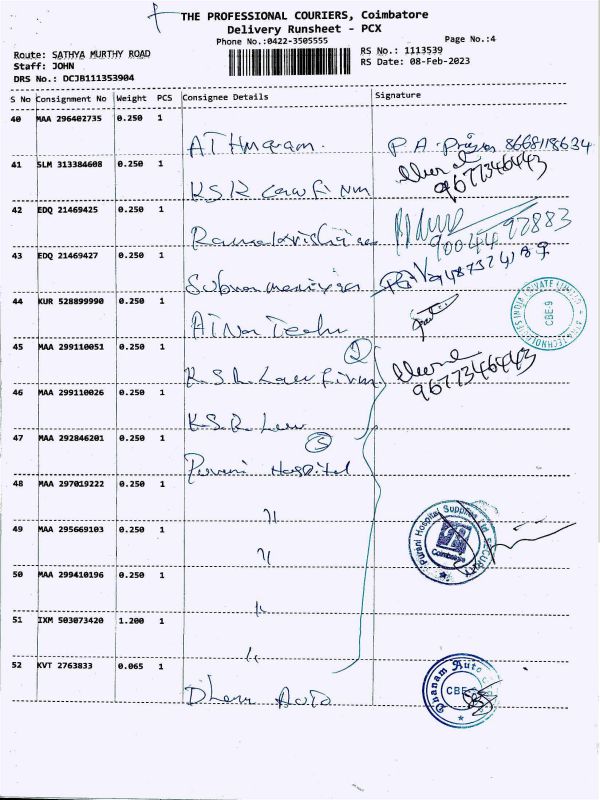 THE PROFESSIONAL COURIERS, Coimbatore
Delivery Runsheet - PCX
Phone No.:0422-3505555
Page No.:4
Route: SATHYA MURTHY ROAD
RS No.: 1113539
Staff: JOHN
RS Date: 08-Feb-2023
DRS No.: DCJB111353904
S No Consignment No Weight PCS Consignee Details Signature
40 MAA 296402735 0.250 1
P.A. 8668118634
41 SLM 313384608 0.250 1
9677346443
K.S.R Law Firm
42 EDQ 21469425 0.250 1
Ramakrishnan
43 EDQ 21469427 0.250 1
Subramaniyan
44 KUR 528899990 0.250 1
CBE-9
45 MAA 299110051 0.250 1
2
K.S.R Law Firm
9677346443
46 MAA 299110026 0.250 1
K.S.R Law
47 MAA 292846201 0.250 1
5
Purani Hospital
48 MAA 297019222 0.250 1
"
Purani Hospital Supplies Ltd SECURITY
Coimbatore
49 MAA 295669103 0.250 1
"
50 MAA 299410196 0.250 1
"
51 IXM 503073420 1.200 1
"
52 KVT 2763833 0.065 1
Auto
Dhanam Auto
CBE